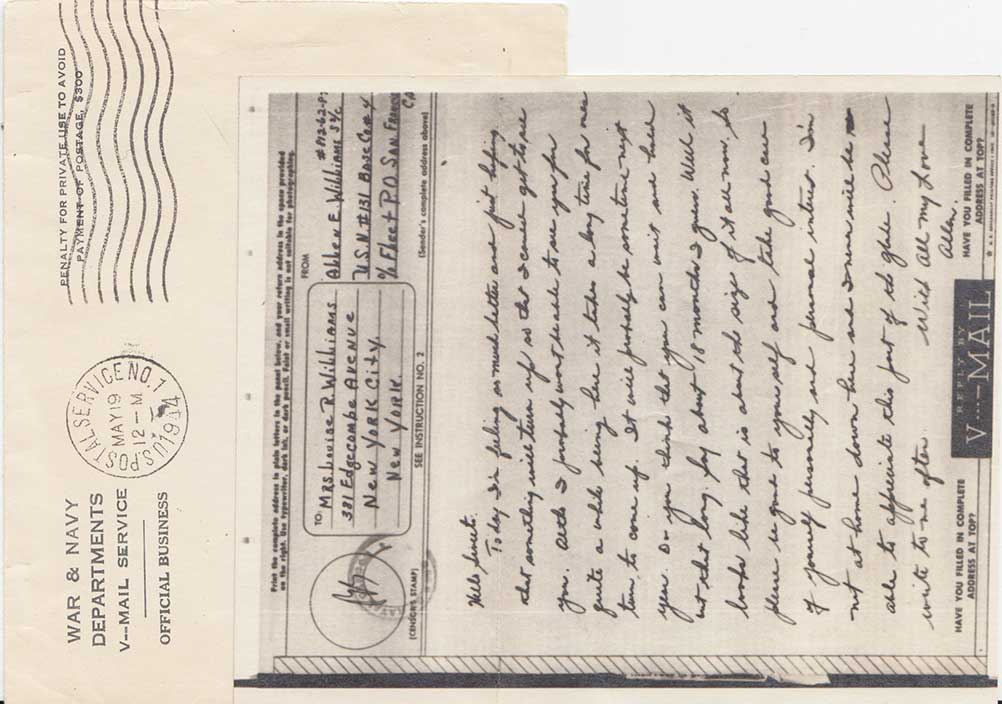 WAR & NAVY
DEPARTMENTS
V---MAIL SERVICE
OFFICIAL BUSINESS
U.S. POSTAL SERVICE NO. 1
MAY 19
12-M
1944
PENALTY FOR PRIVATE USE TO AVOID
PAYMENT OF POSTAGE, $300
Print the complete address in plain letters in the panel below, and your return address in the space provided
on the right. Use typewriter, dark ink, or dark pencil. Faint or small writing is not suitable for photographing.
TO:
MRS. Louise R. Williams
381 Edgecombe Avenue
New York City
New York.
FROM
Allen E. Williams S1/c
U.S.N. #131 Base Co. 4
c/o Fleet P.O. San Francisco
(CENSOR'S STAMP)
SEE INSTRUCTION NO. 2
(Sender's complete address above)
Hello Sweet:
Today I'm feeling so much better and just hoping
that something will turn up so that I can get to see
you. Altho I probably wont be able to see you for
quite a while being here it takes a long time for ones
turn to come up. It will probably be sometime next
year. Do you think that you can wait and hold
out that long, say about 18 months I guess. Well it
looks like that is about the size of it all now, so
please be good to yourself and take good care
of yourself personally and personal interest I'm
not at home down here and I never will be
able to appreciate this part of the globe. Please
write to me often.
With All my Love
Allen.
HAVE YOU FILLED IN COMPLETE
ADDRESS AT TOP?
REPLY BY
V---MAIL
HAVE YOU FILLED IN COMPLETE
ADDRESS AT TOP?